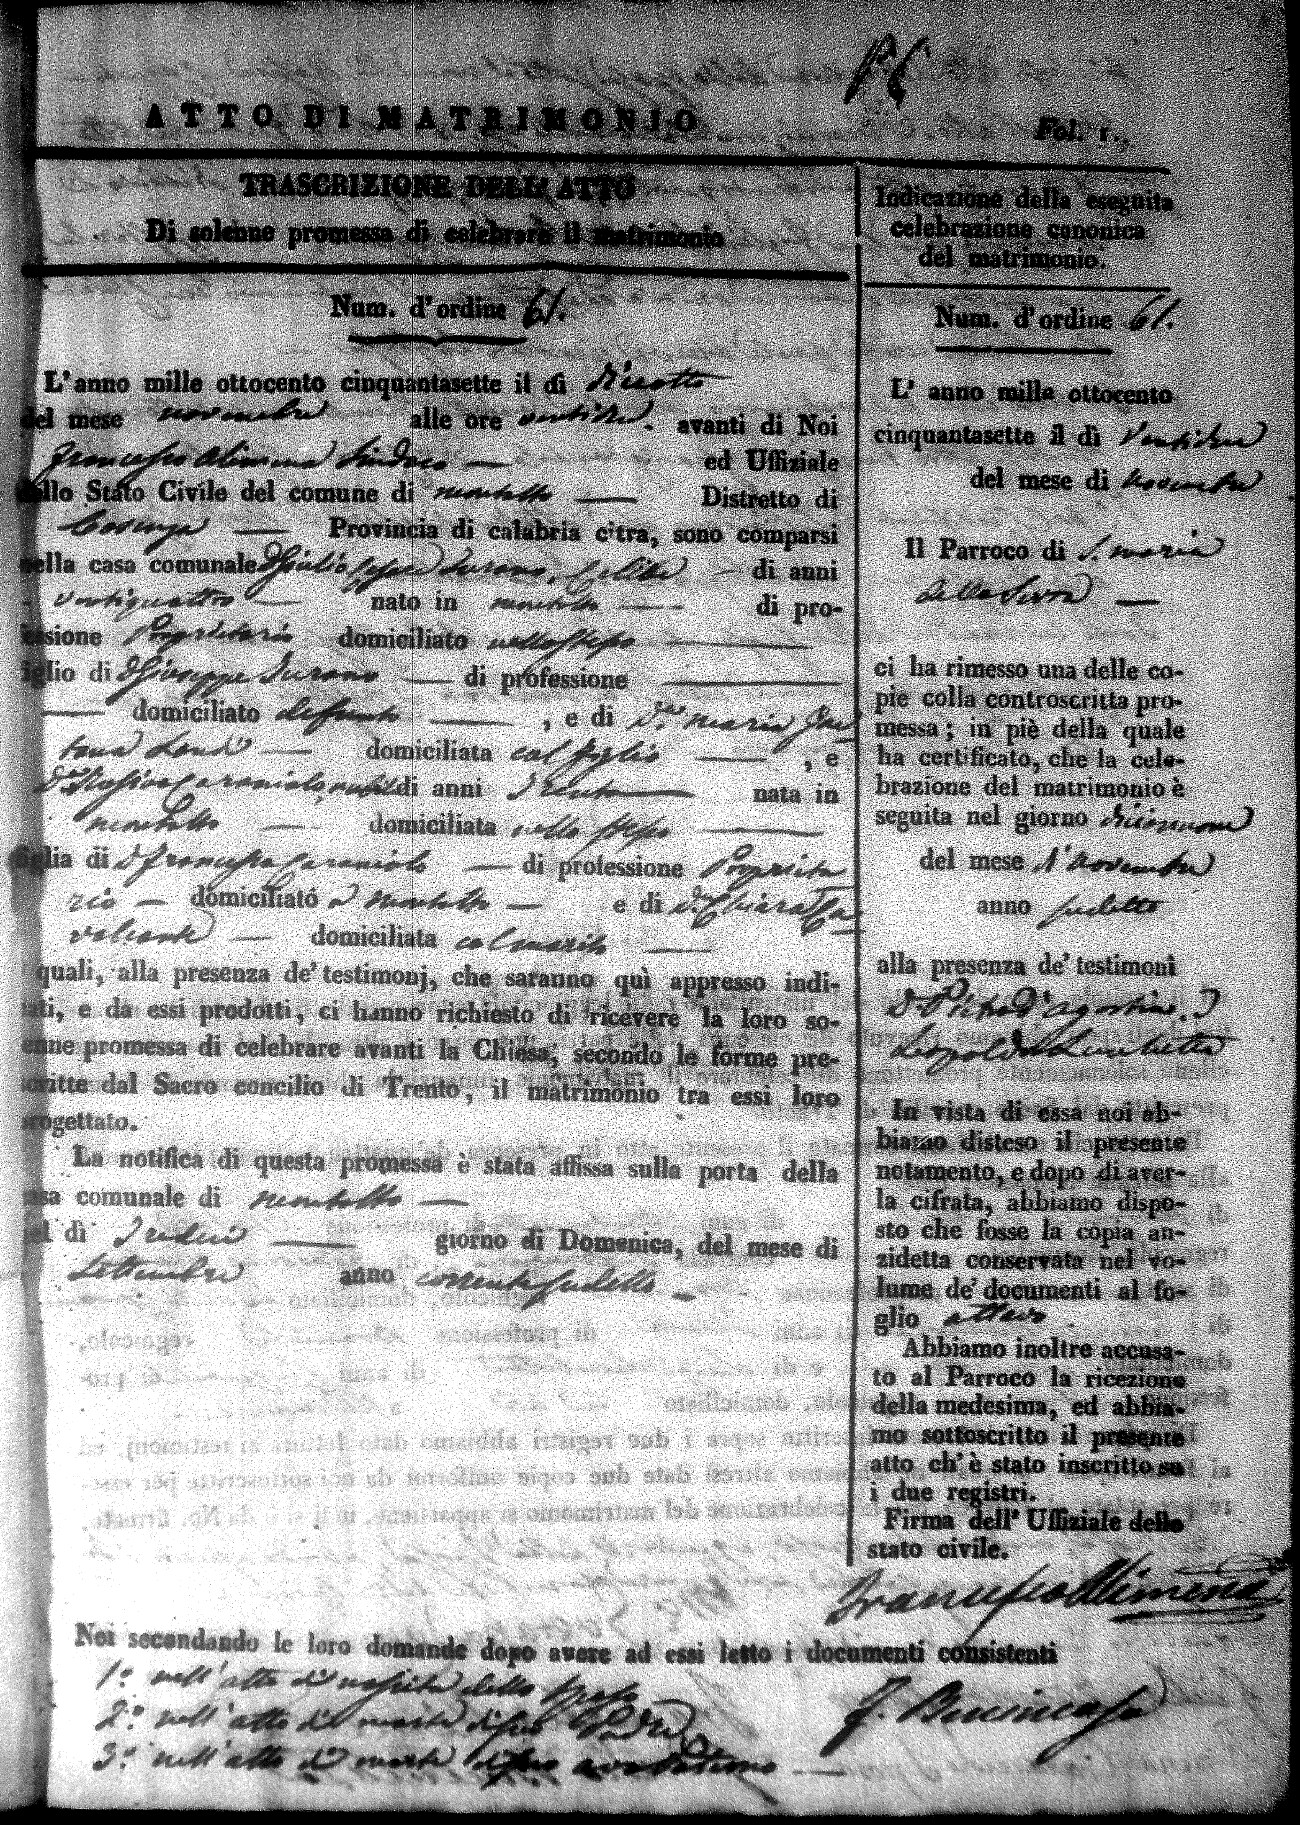 ATTO DI MATRIMONIO
Fol. 1.
TRASCRIZIONE DELL' ATTO
Di solenne promessa di celebrare il matrimonio
Num. d'ordine 61.
L'anno mille ottocento cinquantasette il dì dieciotto
del mese novembre alle ore ventidue. avanti di Noi
Francesco Alimena Sindaco ed Uffiziale
dello Stato Civile del comune di Montalto Distretto di
Cosenza Provincia di calabria citra, sono comparsi
nella casa comunale D. Giulio Turano, Celibe di anni
ventiquattro nato in Montalto di pro-
fessione Proprietario domiciliato nello stesso
figlio di D. Giuseppe Turano di professione
domiciliato defunto, e di D.a Maria
domiciliata col figlio, e
di anni Trenta nata in
Montalto domiciliata nello stesso
figlia di D. Francesco di professione Proprieta
rio domiciliato a Montalto e di D.a Chiara Ca
valcante domiciliata col marito
quali, alla presenza de' testimonj, che saranno quì appresso indi-
cati, e da essi prodotti, ci hanno richiesto di ricevere la loro so-
lenne promessa di celebrare avanti la Chiesa, secondo le forme pre-
scritte dal Sacro concilio di Trento, il matrimonio tra essi loro
progettato.
La notifica di questa promessa è stata affissa sulla porta della
casa comunale di Montalto
nel dì Tredici giorno di Domenica, del mese di
Settembre anno corrente sudetto
Indicazione della eseguita
celebrazione canonica
del matrimonio.
Num. d'ordine 61.
L' anno mille ottocento
cinquantasette il dì Ventidue
del mese di Novembre
Il Parroco di S. Maria
della Serra
ci ha rimesso una delle co-
pie colla controscritta pro-
messa; in piè della quale
ha certificato, che la cele-
brazione del matrimonio è
seguita nel giorno diciannove
del mese di Novembre
anno sudetto
alla presenza de' testimoni
D. Pietro D'Agostino, D.
Leopoldo
In vista di essa noi ab-
biamo disteso il presente
notamento, e dopo di aver-
la cifrata, abbiamo dispo-
sto che fosse la copia an-
zidetta conservata nel vo-
lume de' documenti al fo-
glio
Abbiamo inoltre accusa-
to al Parroco la ricezione
della medesima, ed abbia-
mo sottoscritto il presente
atto ch' è stato inscritto su
i due registri.
Firma dell' Uffiziale dello
stato civile.
Francesco Alimena
Noi secondando le loro domande dopo avere ad essi letto i documenti consistenti
1.° nell'atto di nascita dello sposo
2.° nell'atto di morte di suo Padre
3.° nell'atto di morte di suo avo